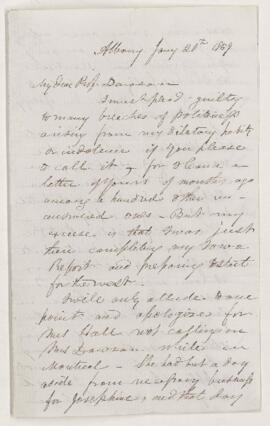 Albany Jany 20th 1859
My dear Prof. Dawson
I must plead guilty
to many breaches of politeness
arising from my dilatory habits
or indolence if you please
to call it, for I have a
letter of yours of months ago
among a hundred other un-
answered ones - But my
excuse is that I was just
then completing my Iowa
Report and preparing to start
for the west.
I will only allude to one
point and apologize for
Mrs Hall not calling on
Mrs Dawson while in
Montreal - She had but a day
aside from necessary business
for Josephine, and that day